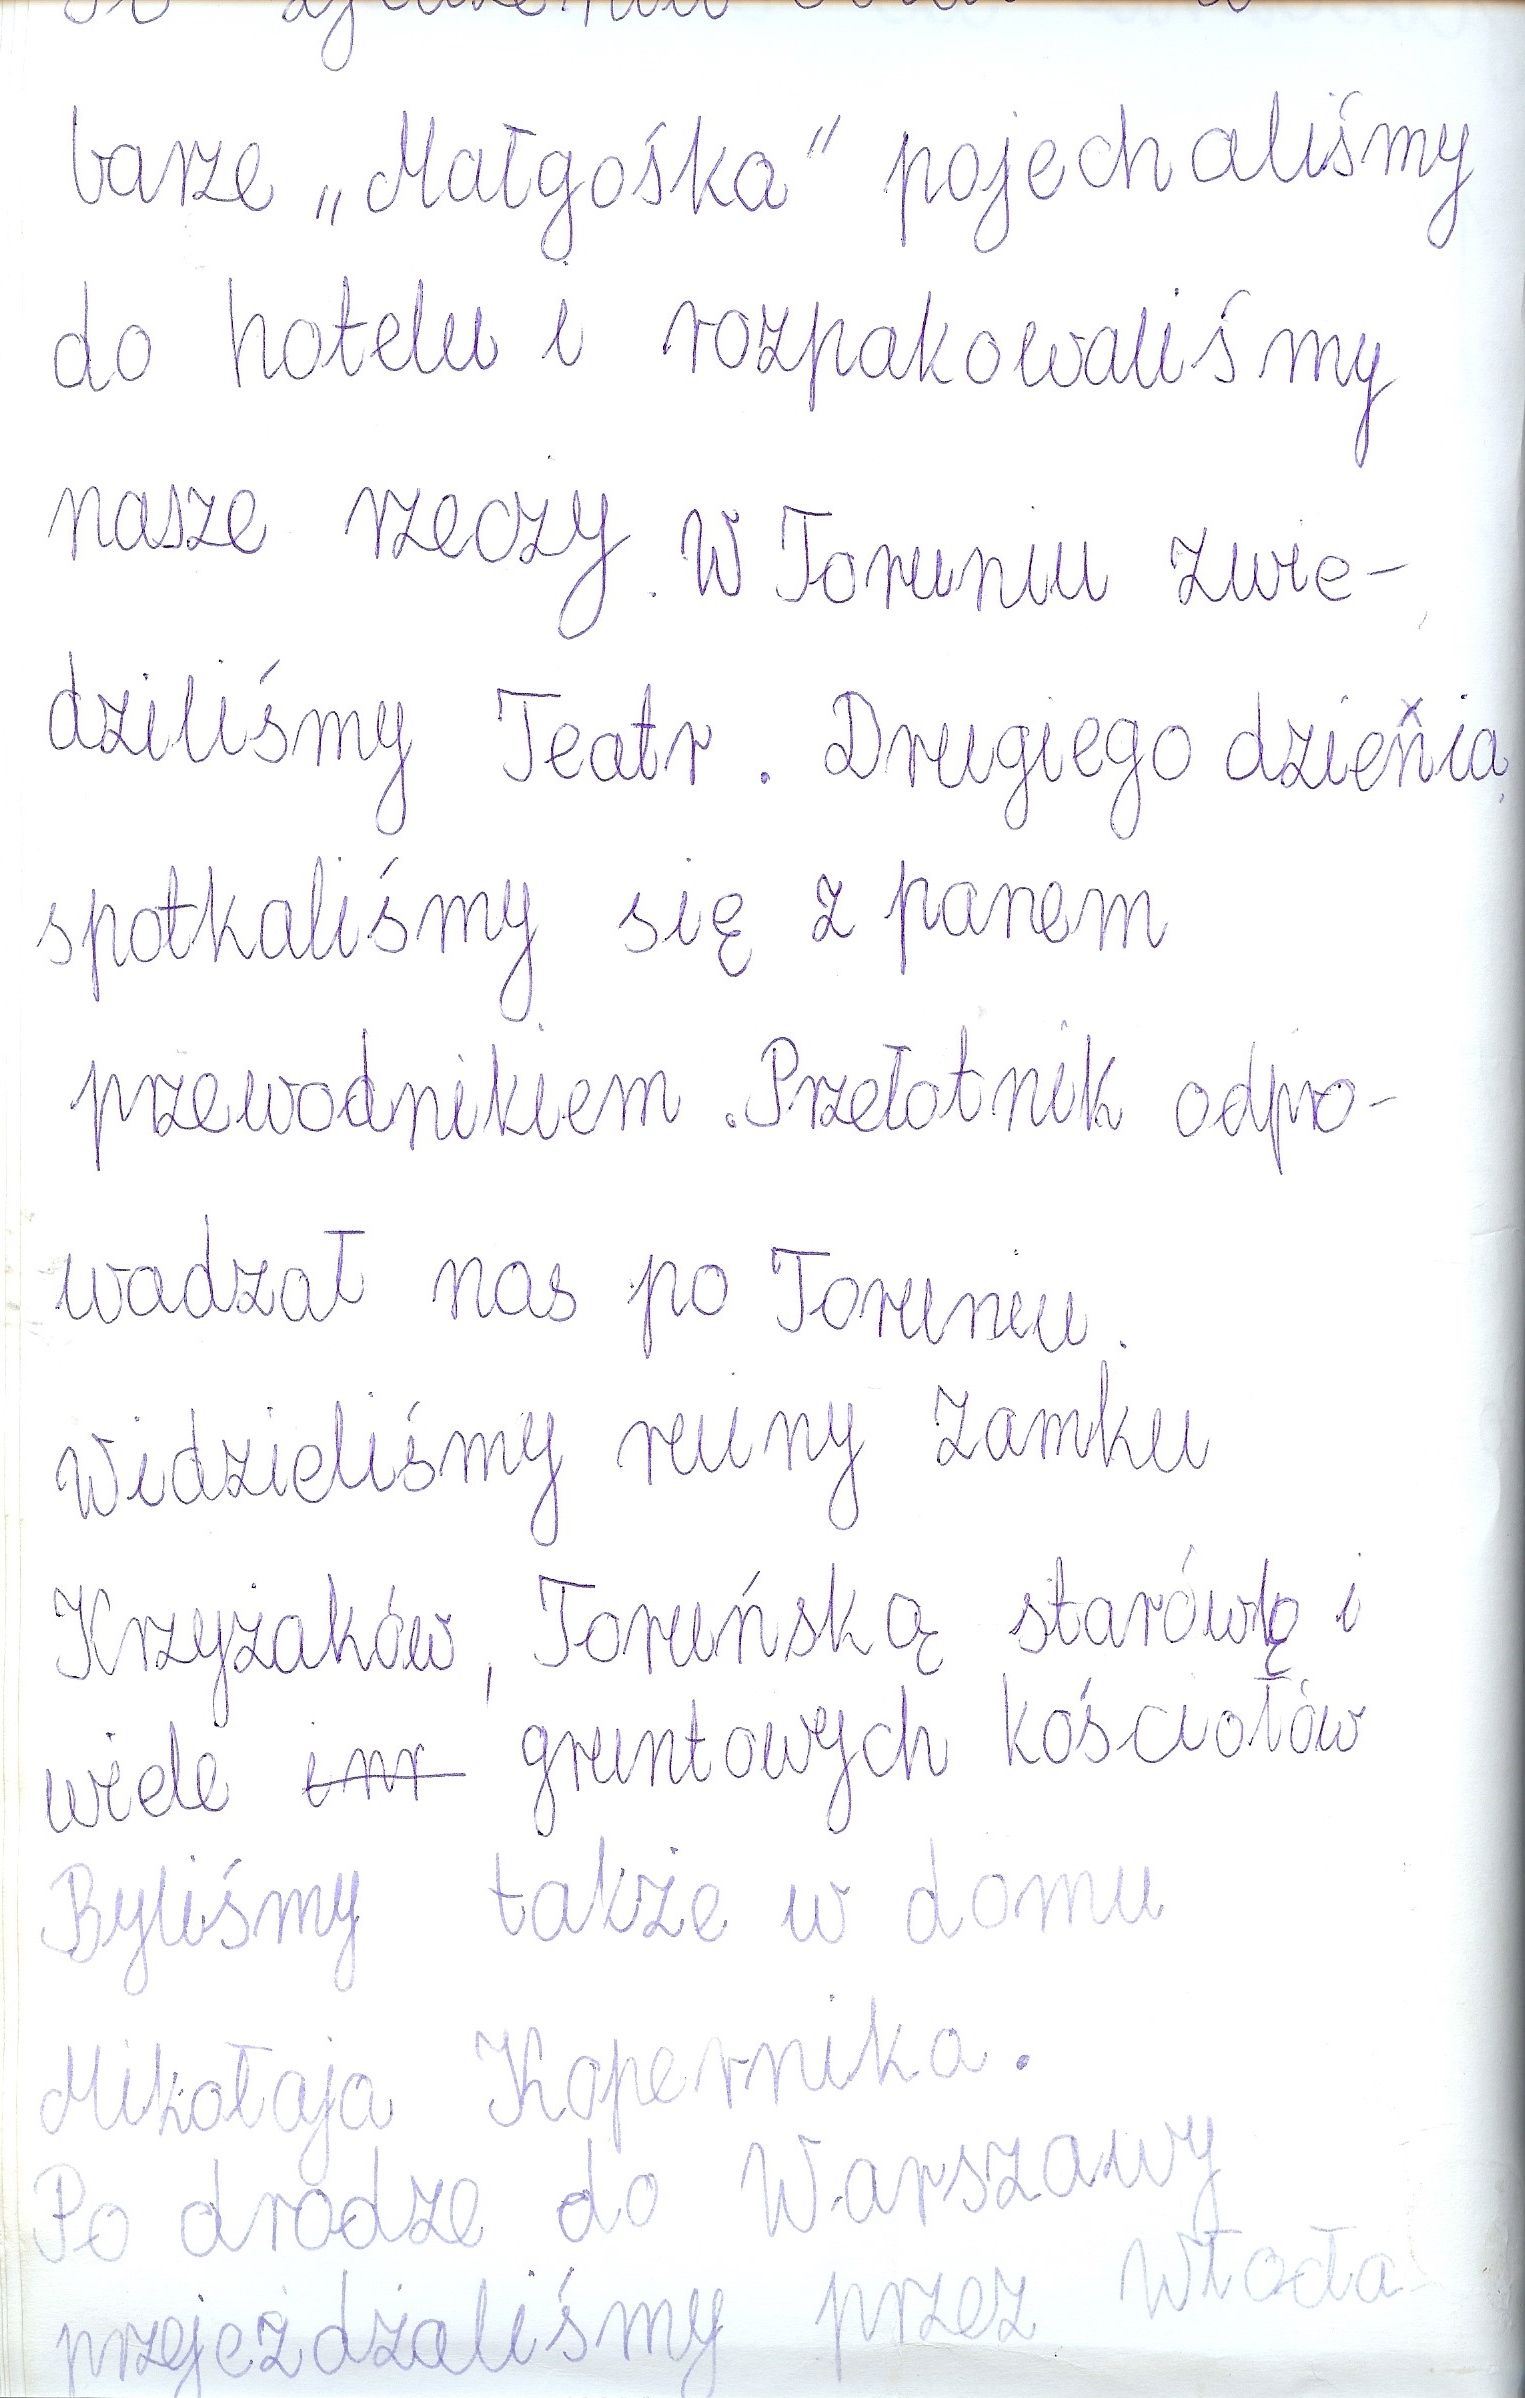 barze „Małgośka" pojechaliśmy
do hotelu i rozpakowaliśmy
nasze rzeczy. W Toruniu zwie-
dziliśmy Teatr. Drugiego dzienia
spotkaliśmy się z panem
przewodnikiem. Przełotnik odpro-
wadzał nas po Toruniu.
Widzieliśmy ruiny zamku
Krzyżaków, Toruńską starówkę i
wiele inr gruntowych kościołów
Byliśmy także w domu
Mikołaja Kopernika.
Po drodze do Warszawy
przejeżdżaliśmy przez Włocła